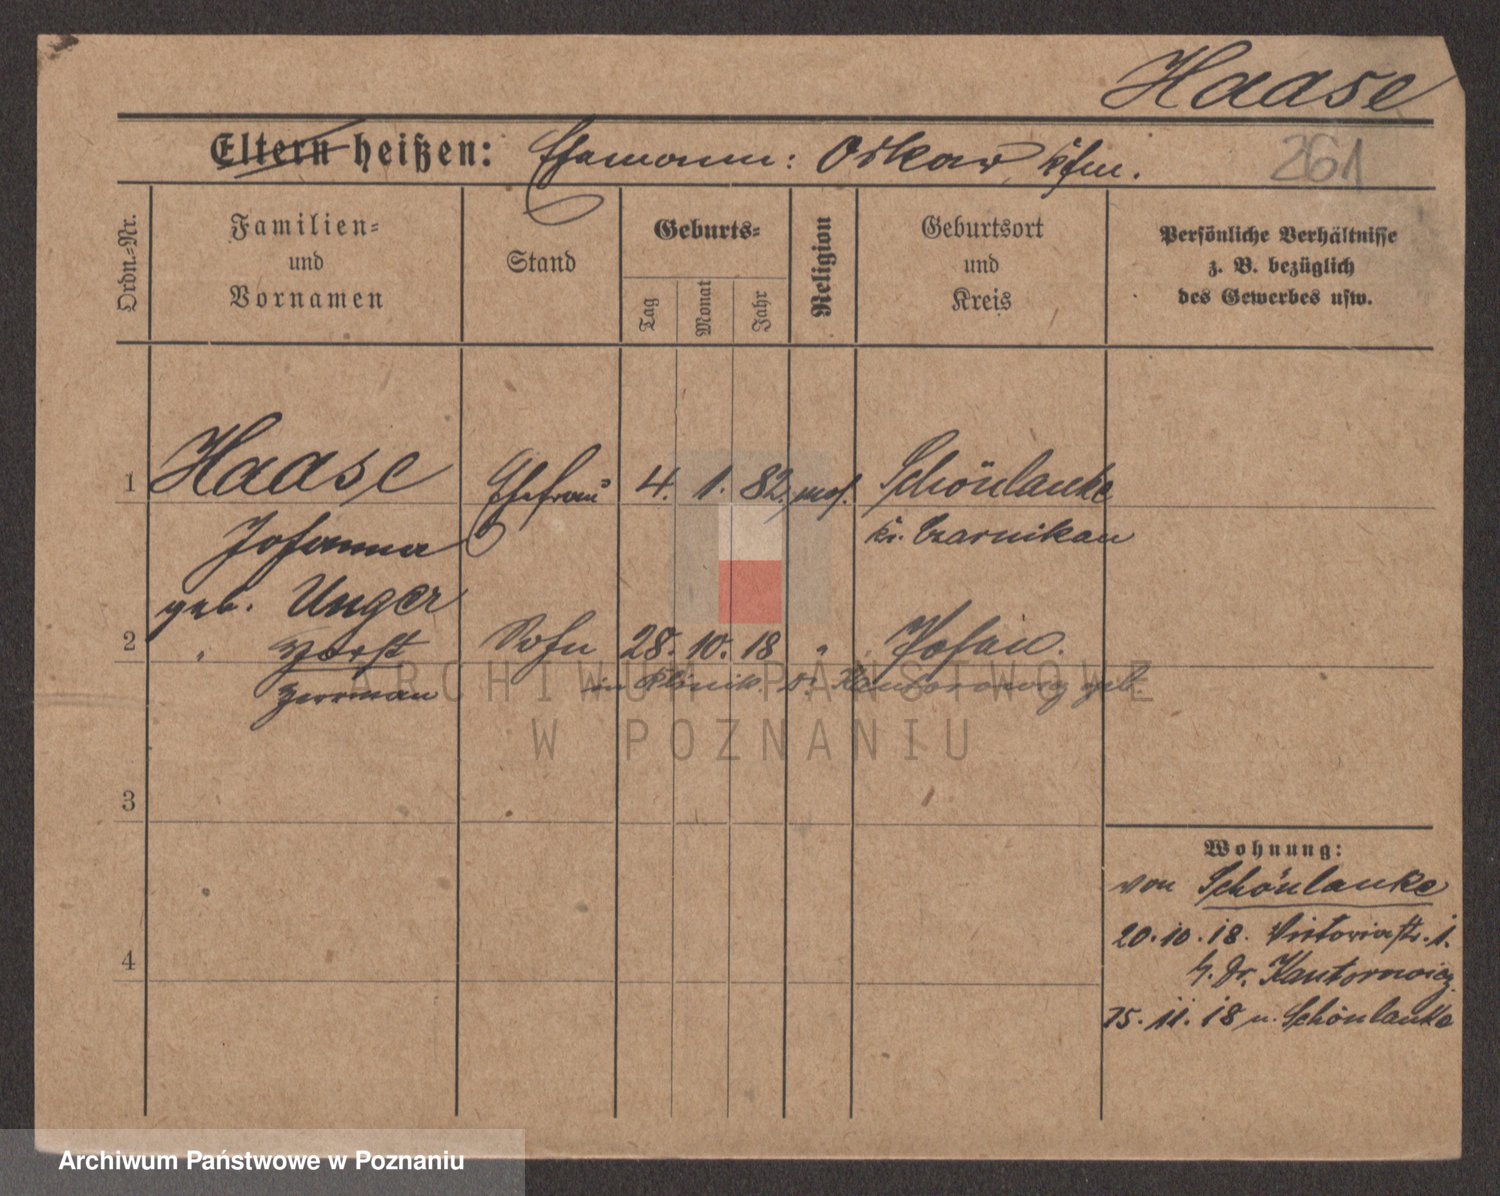 Haase
Eltern heißen: Ehemann: Oskar, Kfm.
261
Ordn.=Nr.
Familien=
und
Vornamen
Stand
Geburts=
Tag
Monat
Jahr
Religion
Geburtsort
und
Kreis
Persönliche Verhältnisse
z. B. bezüglich
des Gewerbes usw.
1 Haase Ehefrau 4. 1. 82. mos. Schönlanke
Johanna Kr. Czarnikau
geb. Unger
2 " Horst Sohn 28. 10. 18 " Posen.
Herrman in Klinik Dr Kantorowicz geb.
ARCHIWUM PAŃSTWOWE
W POZNANIU
3
4
Wohnung:
von Schönlanke
20. 10. 18. Victoriastr. 1.
b. Dr. Kantorowicz
15. 11. 18 n. Schönlanke
Archiwum Państwowe w Poznaniu